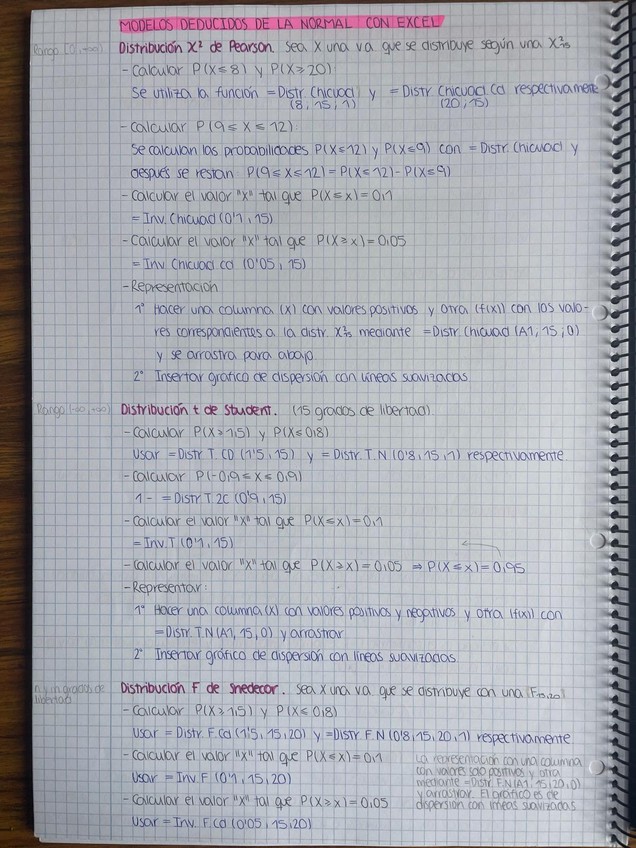 MODELOS DEDUCIDOS DE LA NORMAL CON EXCEL
Rango [0,+∞)
Distribución X² de Pearson. Sea X una va que se distribuye según una X²₁₅
- Calcular P(X≤8) y P(X≥20)
Se utiliza la función = Distr Chicuad y = Distr Chicuad Cd respectivamente
(8, 15, 1) (20, 15)
- Calcular P(9≤X≤12):
Se calculan las probabilidades P(X≤12) y P(X≤9) con = Distr. Chicuad y
después se restan P(9≤X≤12) = P(X≤12) - P(X≤9)
- Calcular el valor "x" tal que P(X≤x)=0,1
= Inv. Chicuad (0'1, 15)
- Calcular el valor "x" tal que P(X≥x)=0,05
= Inv Chicuad cd (0'05, 15)
- Representación
1º Hacer una columna (x) con valores positivos y otra (f(x)) con los valo-
res correspondientes a la distr. X²₁₅ mediante = Distr Chicuad (A1, 15, 0)
y se arrastra para abajo.
2º Insertar gráfico de dispersión con líneas suavizadas
Rango (-∞,+∞)
Distribución t de Student. (15 grados de libertad)
- Calcular P(X≥1,5) y P(X≤0,8)
Usar = Distr T. CD (1'5, 15) y = Distr. T. N (0'8, 15, 1) respectivamente
- Calcular P(-0,9≤X≤0,9)
1 - = Distr T 2C (0'9, 15)
- Calcular el valor "x" tal que P(X≤x)=0,1
= Inv. T (0'1, 15)
- Calcular el valor "x" tal que P(X≥x)=0,05 ⇒ P(X≤x)=0,95
- Representar:
1º Hacer una columna (x) con valores positivos y negativos y otra (f(x)) con
= Distr. T N (A1, 15, 0) y arrastrar
2º Insertar gráfico de dispersión con líneas suavizadas.
n y m grados de
libertad
Distribución F de Snedecor. Sea X una va que se distribuye con una (F₁₅,₂₀)
- Calcular P(X≥1,5) y P(X≤0,8)
Usar = Distr F. Cd (1'5, 15, 20) y = Distr F. N (0'8, 15, 20, 1) respectivamente.
- Calcular el valor "x" tal que P(X≤x)=0,1
Usar = Inv. F (0'1, 15, 20)
- Calcular el valor "x" tal que P(X≥x)=0,05
Usar = Inv. F. Cd (0'05, 15, 20)
La representación con una columna
con valores solo positivos y otra
mediante = Distr. F. N (A1, 15, 20, 0)
y arrastrar. El gráfico es de
dispersión con líneas suavizadas